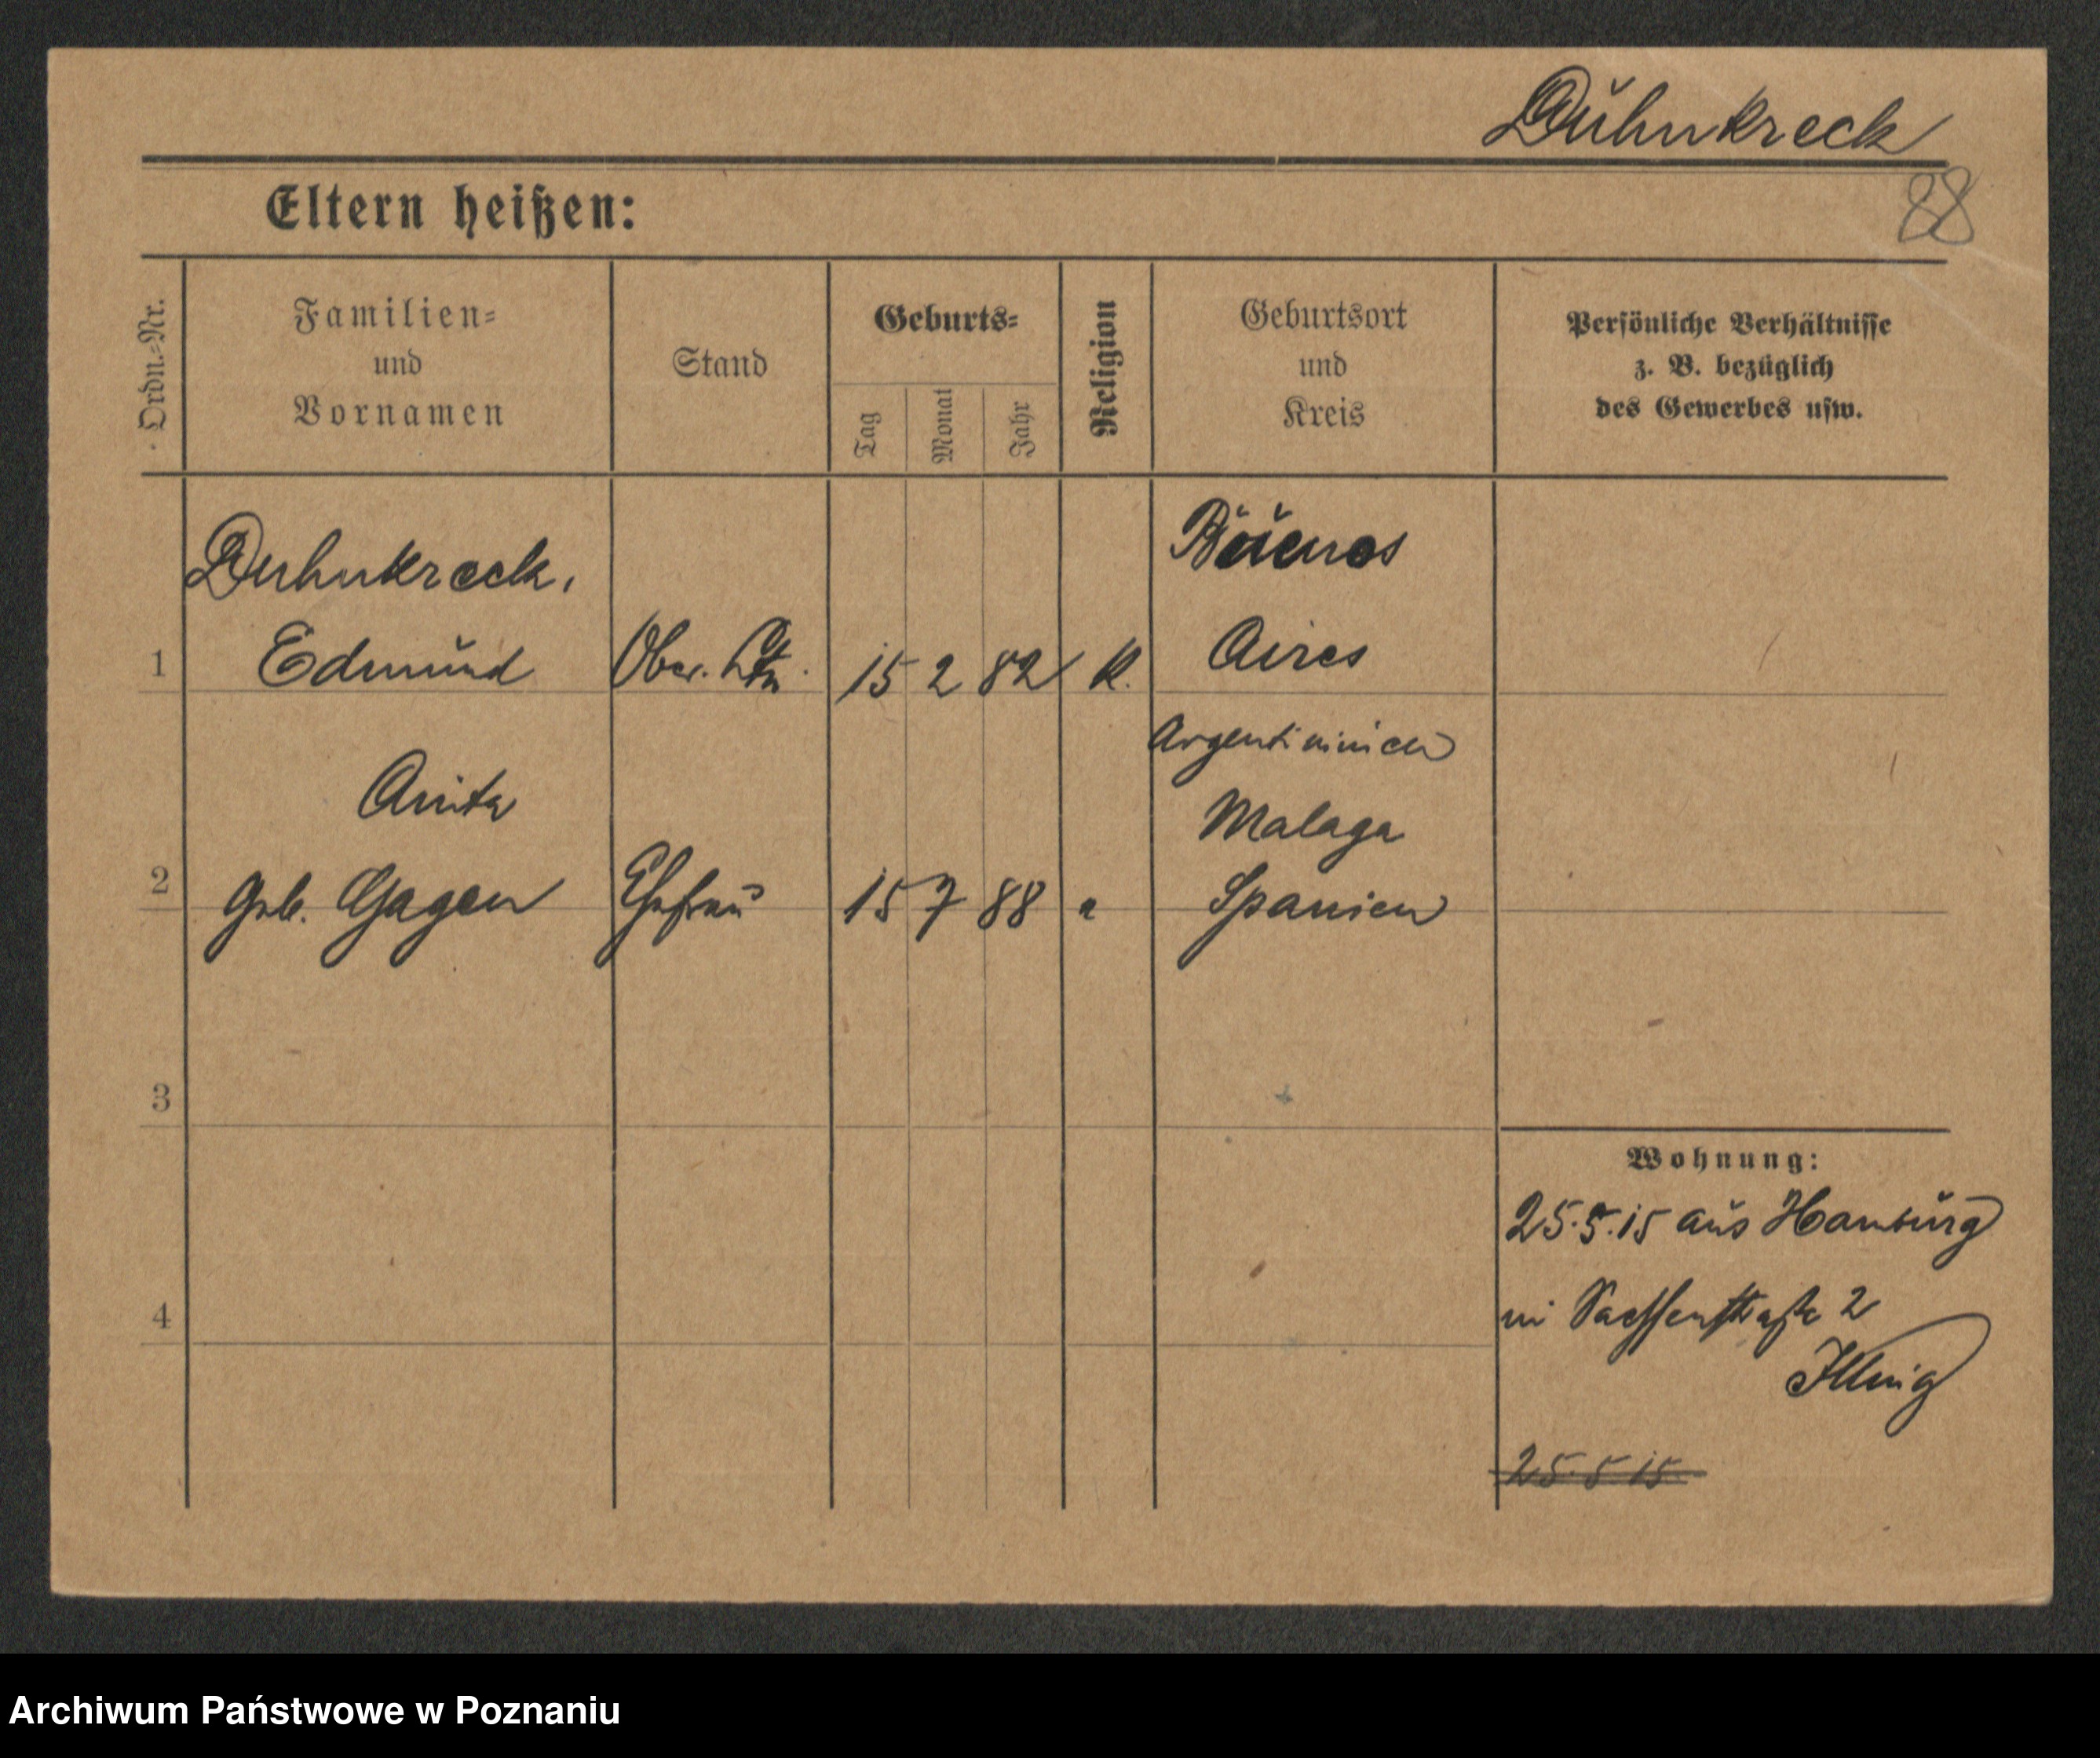 Duhnkreck
88
Eltern heißen:
Ordn.-Nr.
Familien-
und
Vornamen
Stand
Geburts-
Tag
Monat
Jahr
Religion
Geburtsort
und
Kreis
Persönliche Verhältnisse
z. B. bezüglich
des Gewerbes usw.
Duhnkreck,
Buenos
1 Edmund Ober. Ltn. 15 2 82 K. Aires
Argentinien
Anita
Malaga
2 geb. Gagen Ehefrau 15 7 88 " Spanien
3
4
Wohnung:
25.5.15 aus Hamburg
in Sachsenstraße 2
Illing
25.5 15
Archiwum Państwowe w Poznaniu